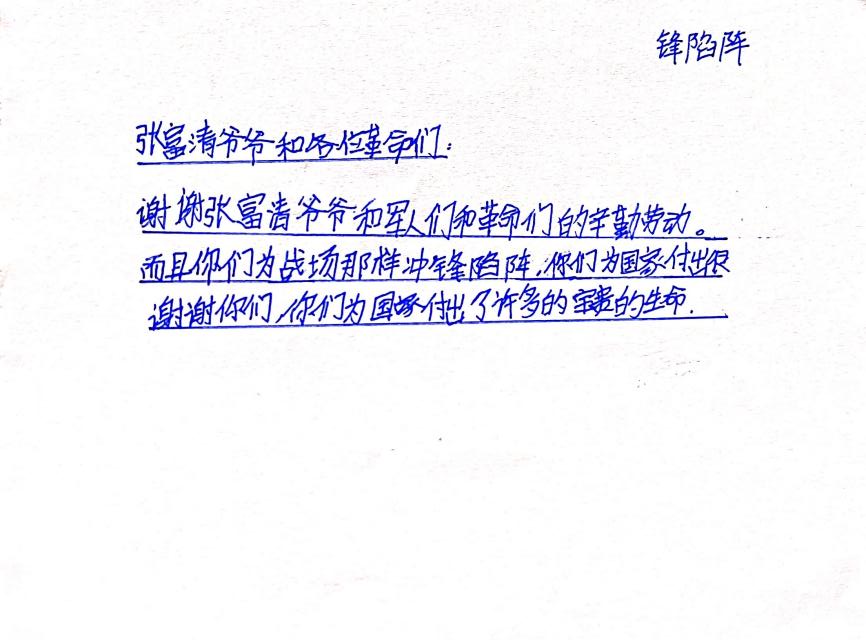 锋陷阵
张富清爷爷和各位革命们:
谢谢张富清爷爷和军人们和革命们的辛勤劳动。
而且你们为战场那样冲锋陷阵,你们为国家付出很
谢谢你们,你们为国家付出了许多的宝贵的生命.